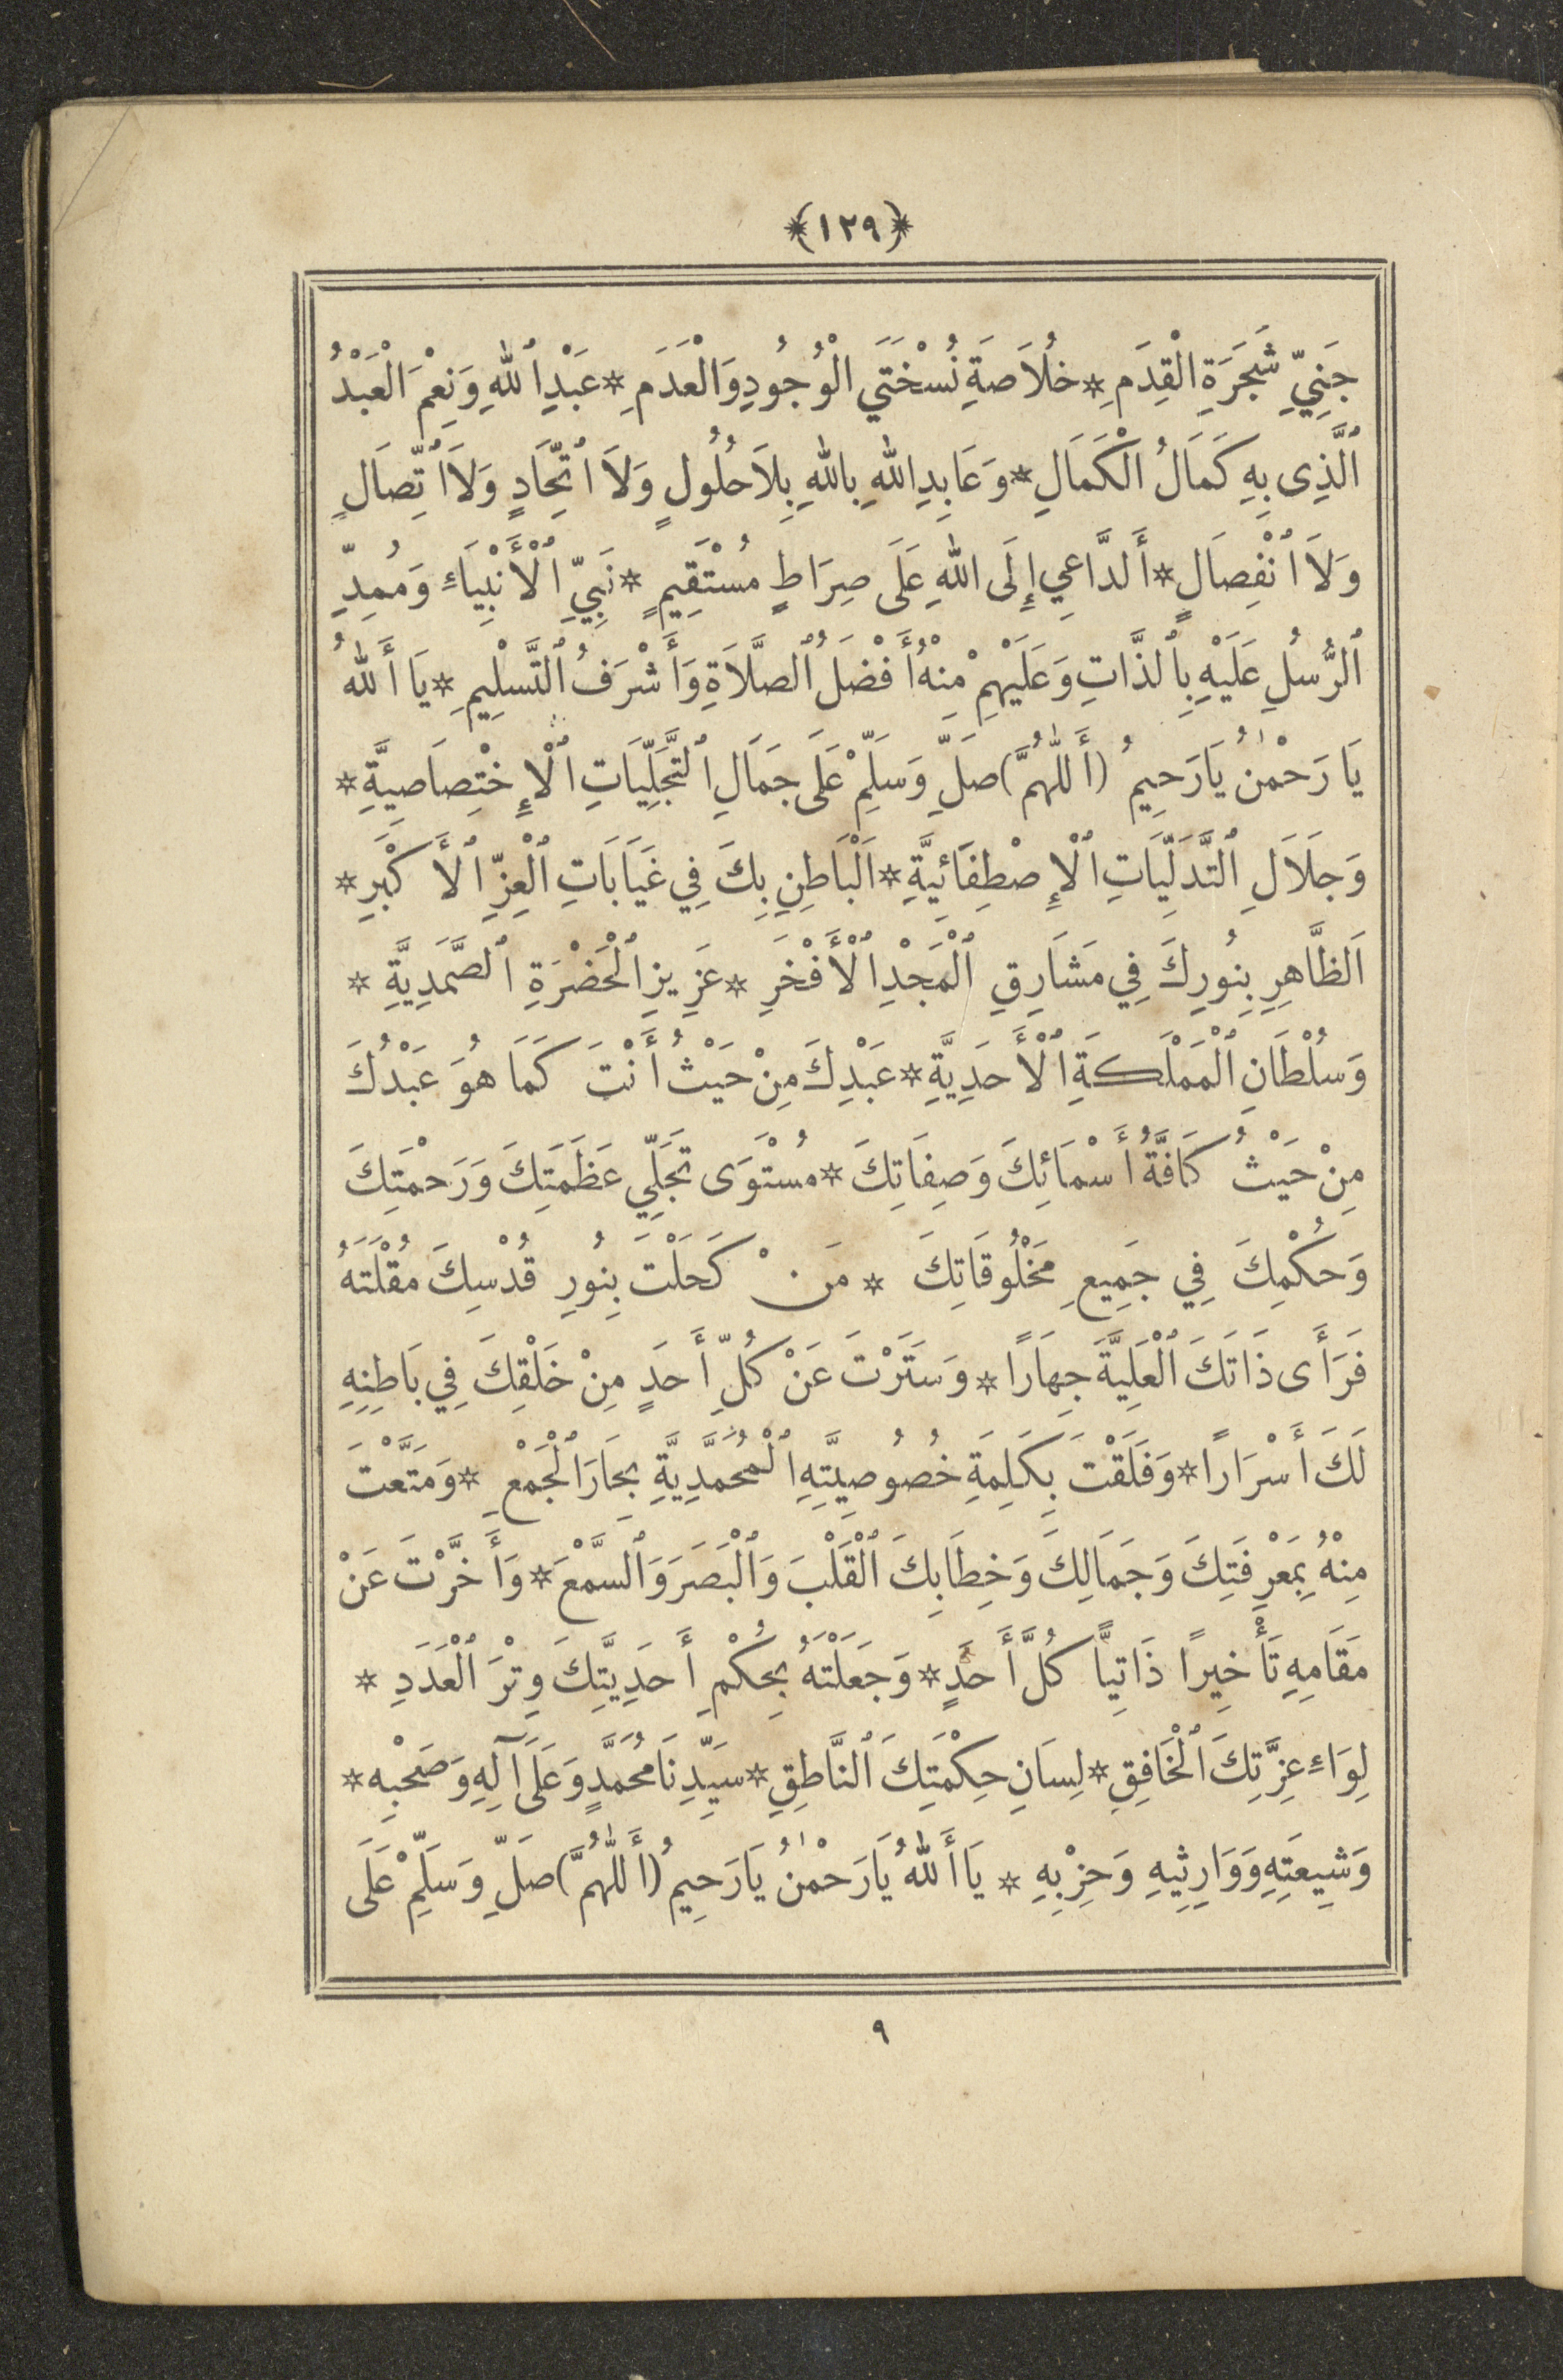 ﴿١٢٩﴾
جَنِيِّ شَجَرَةِ الْقِدَمِ * خُلَاصَةِ نُسْخَتَيِ الْوُجُودِ وَالْعَدَمِ * عَبْدِ ٱللهِ وَنِعْمَ الْعَبْدُ
ٱلَّذِى بِهِ كَمَالُ الْكَمَالِ * وَعَابِدِ اللهِ بِاللهِ بِلَا حُلُولٍ وَلَا ٱتِّحَادٍ وَلَا ٱتِّصَالٍ
وَلَا ٱنْفِصَالٍ * أَلدَّاعِي إِلَى اللهِ عَلَى صِرَاطٍ مُسْتَقِيمٍ * نَبِيِّ ٱلْأَنْبِيَاءِ وَمُمِدِّ
ٱلرُّسُلِ عَلَيْهِ بِٱلذَّاتِ وَعَلَيْهِمْ مِنْهُ أَفْضَلُ ٱلصَّلَاةِ وَأَشْرَفُ ٱلتَّسْلِيمِ * يَا أَللهُ
يَا رَحْمٰنُ يَا رَحِيمُ (أَللّٰهُمَّ) صَلِّ وَسَلِّمْ عَلَى جَمَالِ ٱلتَّجَلِّيَاتِ ٱلْإِخْتِصَاصِيَّةِ *
وَجَلَالِ ٱلتَّدَلِّيَاتِ ٱلْإِصْطِفَائِيَّةِ * اَلْبَاطِنِ بِكَ فِي غَيَابَاتِ ٱلْعِزِّ ٱلْأَكْبَرِ *
اَلظَّاهِرِ بِنُورِكَ فِي مَشَارِقِ ٱلْمَجْدِ ٱلْأَفْخَرِ * عَزِيزِ ٱلْحَضْرَةِ ٱلصَّمَدِيَّةِ *
وَسُلْطَانِ ٱلْمَمْلَكَةِ ٱلْأَحَدِيَّةِ * عَبْدِكَ مِنْ حَيْثُ أَنْتَ كَمَا هُوَ عَبْدُكَ
مِنْ حَيْثُ كَافَّةُ أَسْمَائِكَ وَصِفَاتِكَ * مُسْتَوَى تَجَلِّي عَظَمَتِكَ وَرَحْمَتِكَ
وَحُكْمِكَ فِي جَمِيعِ مَخْلُوقَاتِكَ * مَنْ كَحَلْتَ بِنُورِ قُدْسِكَ مُقْلَتَهُ
فَرَأَى ذَاتَكَ ٱلْعَلِيَّةَ جِهَارًا * وَسَتَرْتَ عَنْ كُلِّ أَحَدٍ مِنْ خَلْقِكَ فِي بَاطِنِهِ
لَكَ أَسْرَارًا * وَفَلَقْتَ بِكَلِمَةِ خُصُوصِيَّتِهِ ٱلْمُحَمَّدِيَّةِ بِحَارَ ٱلْجَمْعِ * وَمَتَّعْتَ
مِنْهُ بِمَعْرِفَتِكَ وَجَمَالِكَ وَخِطَابِكَ ٱلْقَلْبَ وَٱلْبَصَرَ وَٱلسَّمْعَ * وَأَخَّرْتَ عَنْ
مَقَامِهِ تَأْخِيرًا ذَاتِيًّا كُلَّ أَحَدٍ * وَجَعَلْتَهُ بِحُكْمِ أَحَدِيَّتِكَ وِتْرَ ٱلْعَدَدِ *
لِوَاءِ عِزَّتِكَ ٱلْخَافِقِ * لِسَانِ حِكْمَتِكَ ٱلنَّاطِقِ * سَيِّدِنَا مُحَمَّدٍ وَعَلَى آلِهِ وَصَحْبِهِ *
وَشِيعَتِهِ وَوَارِثِيهِ وَحِزْبِهِ * يَا أَللهُ يَا رَحْمٰنُ يَا رَحِيمُ (أَللّٰهُمَّ) صَلِّ وَسَلِّمْ عَلَى
٩